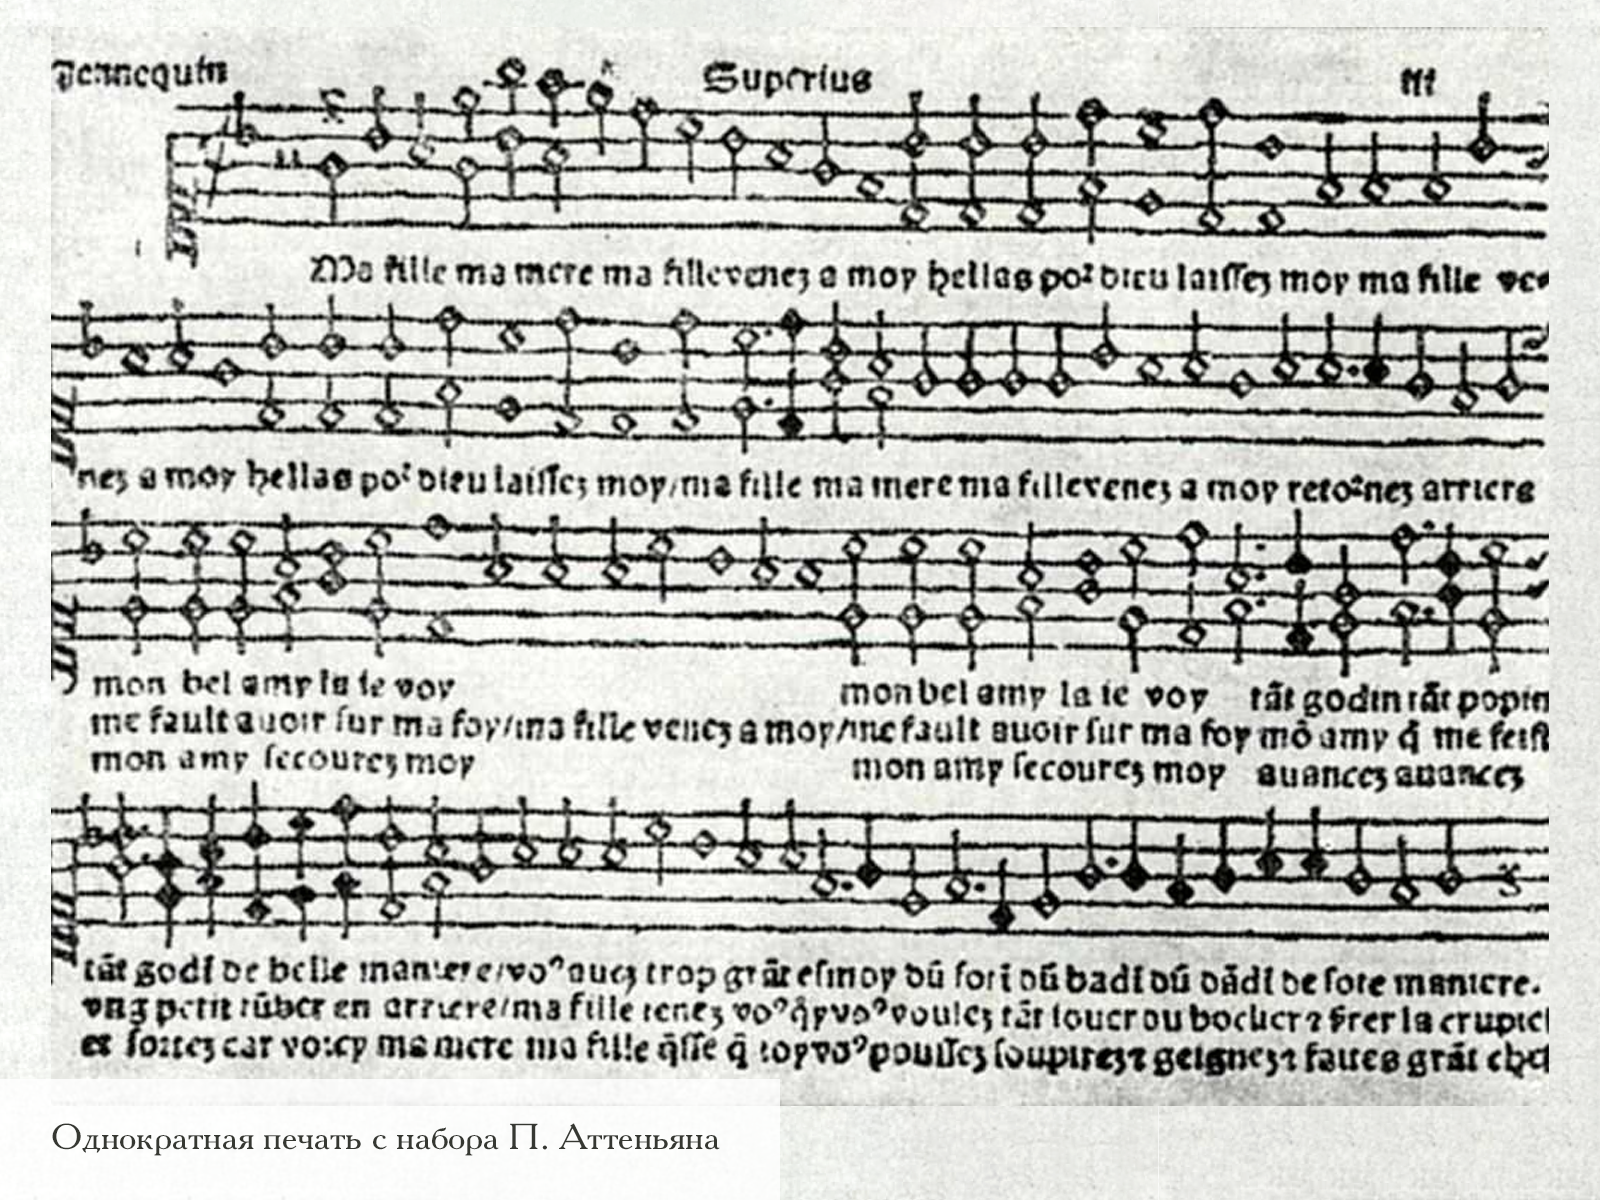 Jennequin Superius iii
Ma fille ma mere ma fille venez a moy hellas poꝛ dieu laissez moy ma fille ve
nez a moy hellas poꝛ dieu laissez moy/ma fille ma mere ma fille venez a moy retoꝛnez arriere
mon bel amy la ie voy mon bel amy la ie voy tãt godin tãt popin
me fault auoir sur ma foy/ma fille venez a moy/me fault auoir sur ma foy mõ amy q̃ me feist
mon amy secourez moy mon amy secourez moy auancez auancez
tãt godĩ de belle maniere/voꝰ auez trop grãt esmoy dũ forĩ dũ badĩ dũ dãdĩ de sote maniere.
ung petit rũber en arriere/ma fille tenez voꝰ q̃l voꝰ voulez tãt iouer ou
et sortez car voicy ma mere ma fille q̃lle q̃ voꝰ poulsez souspirez⁊ geignez⁊ faites grãt
Однократная печать с набора П. Аттеньяна